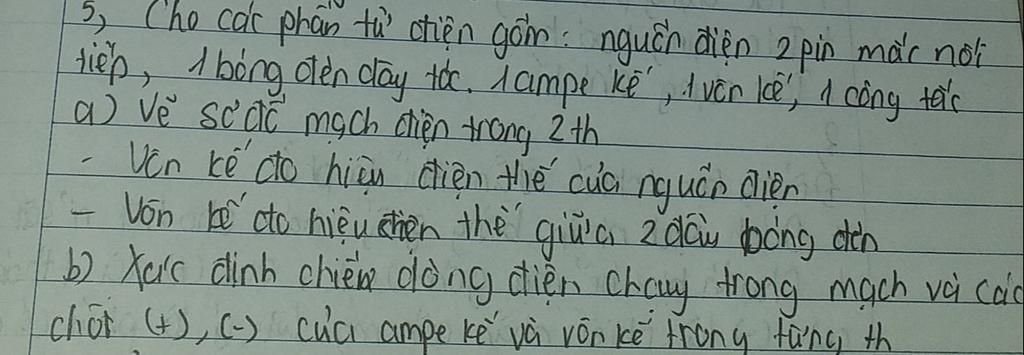 5, Cho các phần tử điện gồm: nguồn điện 2 pin mắc nối
tiếp, 1 bóng đèn dây tóc. 1 ampe kế, 1 vôn kế, 1 công tắc
a) Vẽ sơ đồ mạch điện trong 2 th
- Vôn kế đo hiệu điện thế của nguồn điện
- Vôn kế đo hiệu điện thế giữa 2 đầu bóng đèn
b) Xác định chiều dòng điện chạy trong mạch và các
chốt (+), (-) của ampe kế và vôn kế trong từng th